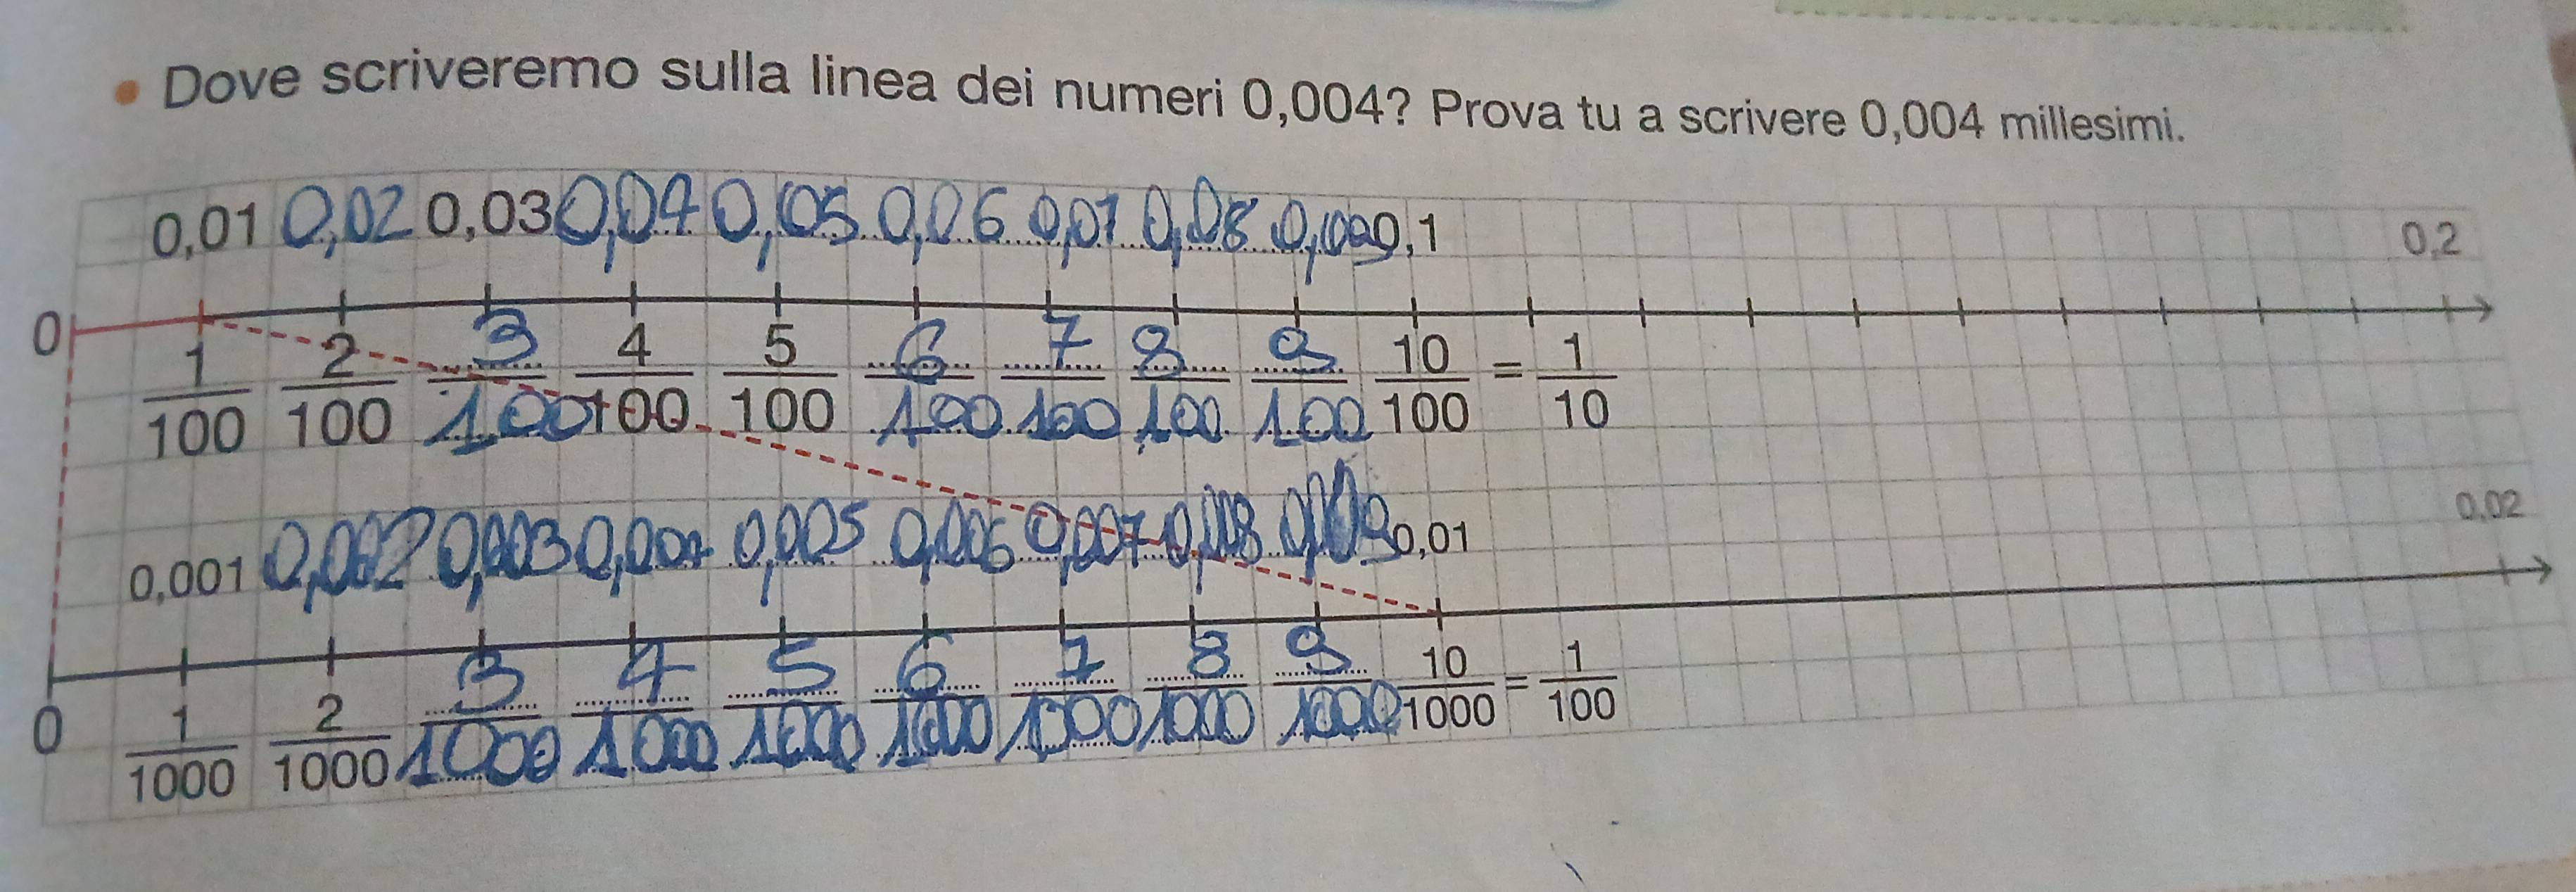 • Dove scriveremo sulla linea dei numeri 0,004? Prova tu a scrivere 0,004 millesimi.
0,01 0,02 0,03 0,04 0,05 0,06 0,07 0,08 0,1 0,2
0
1 2 3 4 5 6 7 8 9 10 = 1
100 100 100 100 100 100 100 100 100 100 10
0,001 0,002 0,003 0,004 0,005 0,006 0,007 0,008 0,009 0,01 0,02
1 2 3 4 5 6 7 8 9 10 = 1
0 1000 1000 1000 1000 1000 1000 1000 1000 1000 1000 100